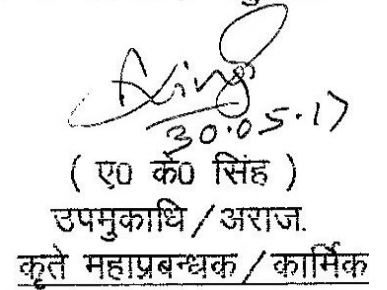 Sing
30.05.17
( ए0 के0 सिंह )
उपमुकाधि / अराज.
कृते महाप्रबन्धक / कार्मिक